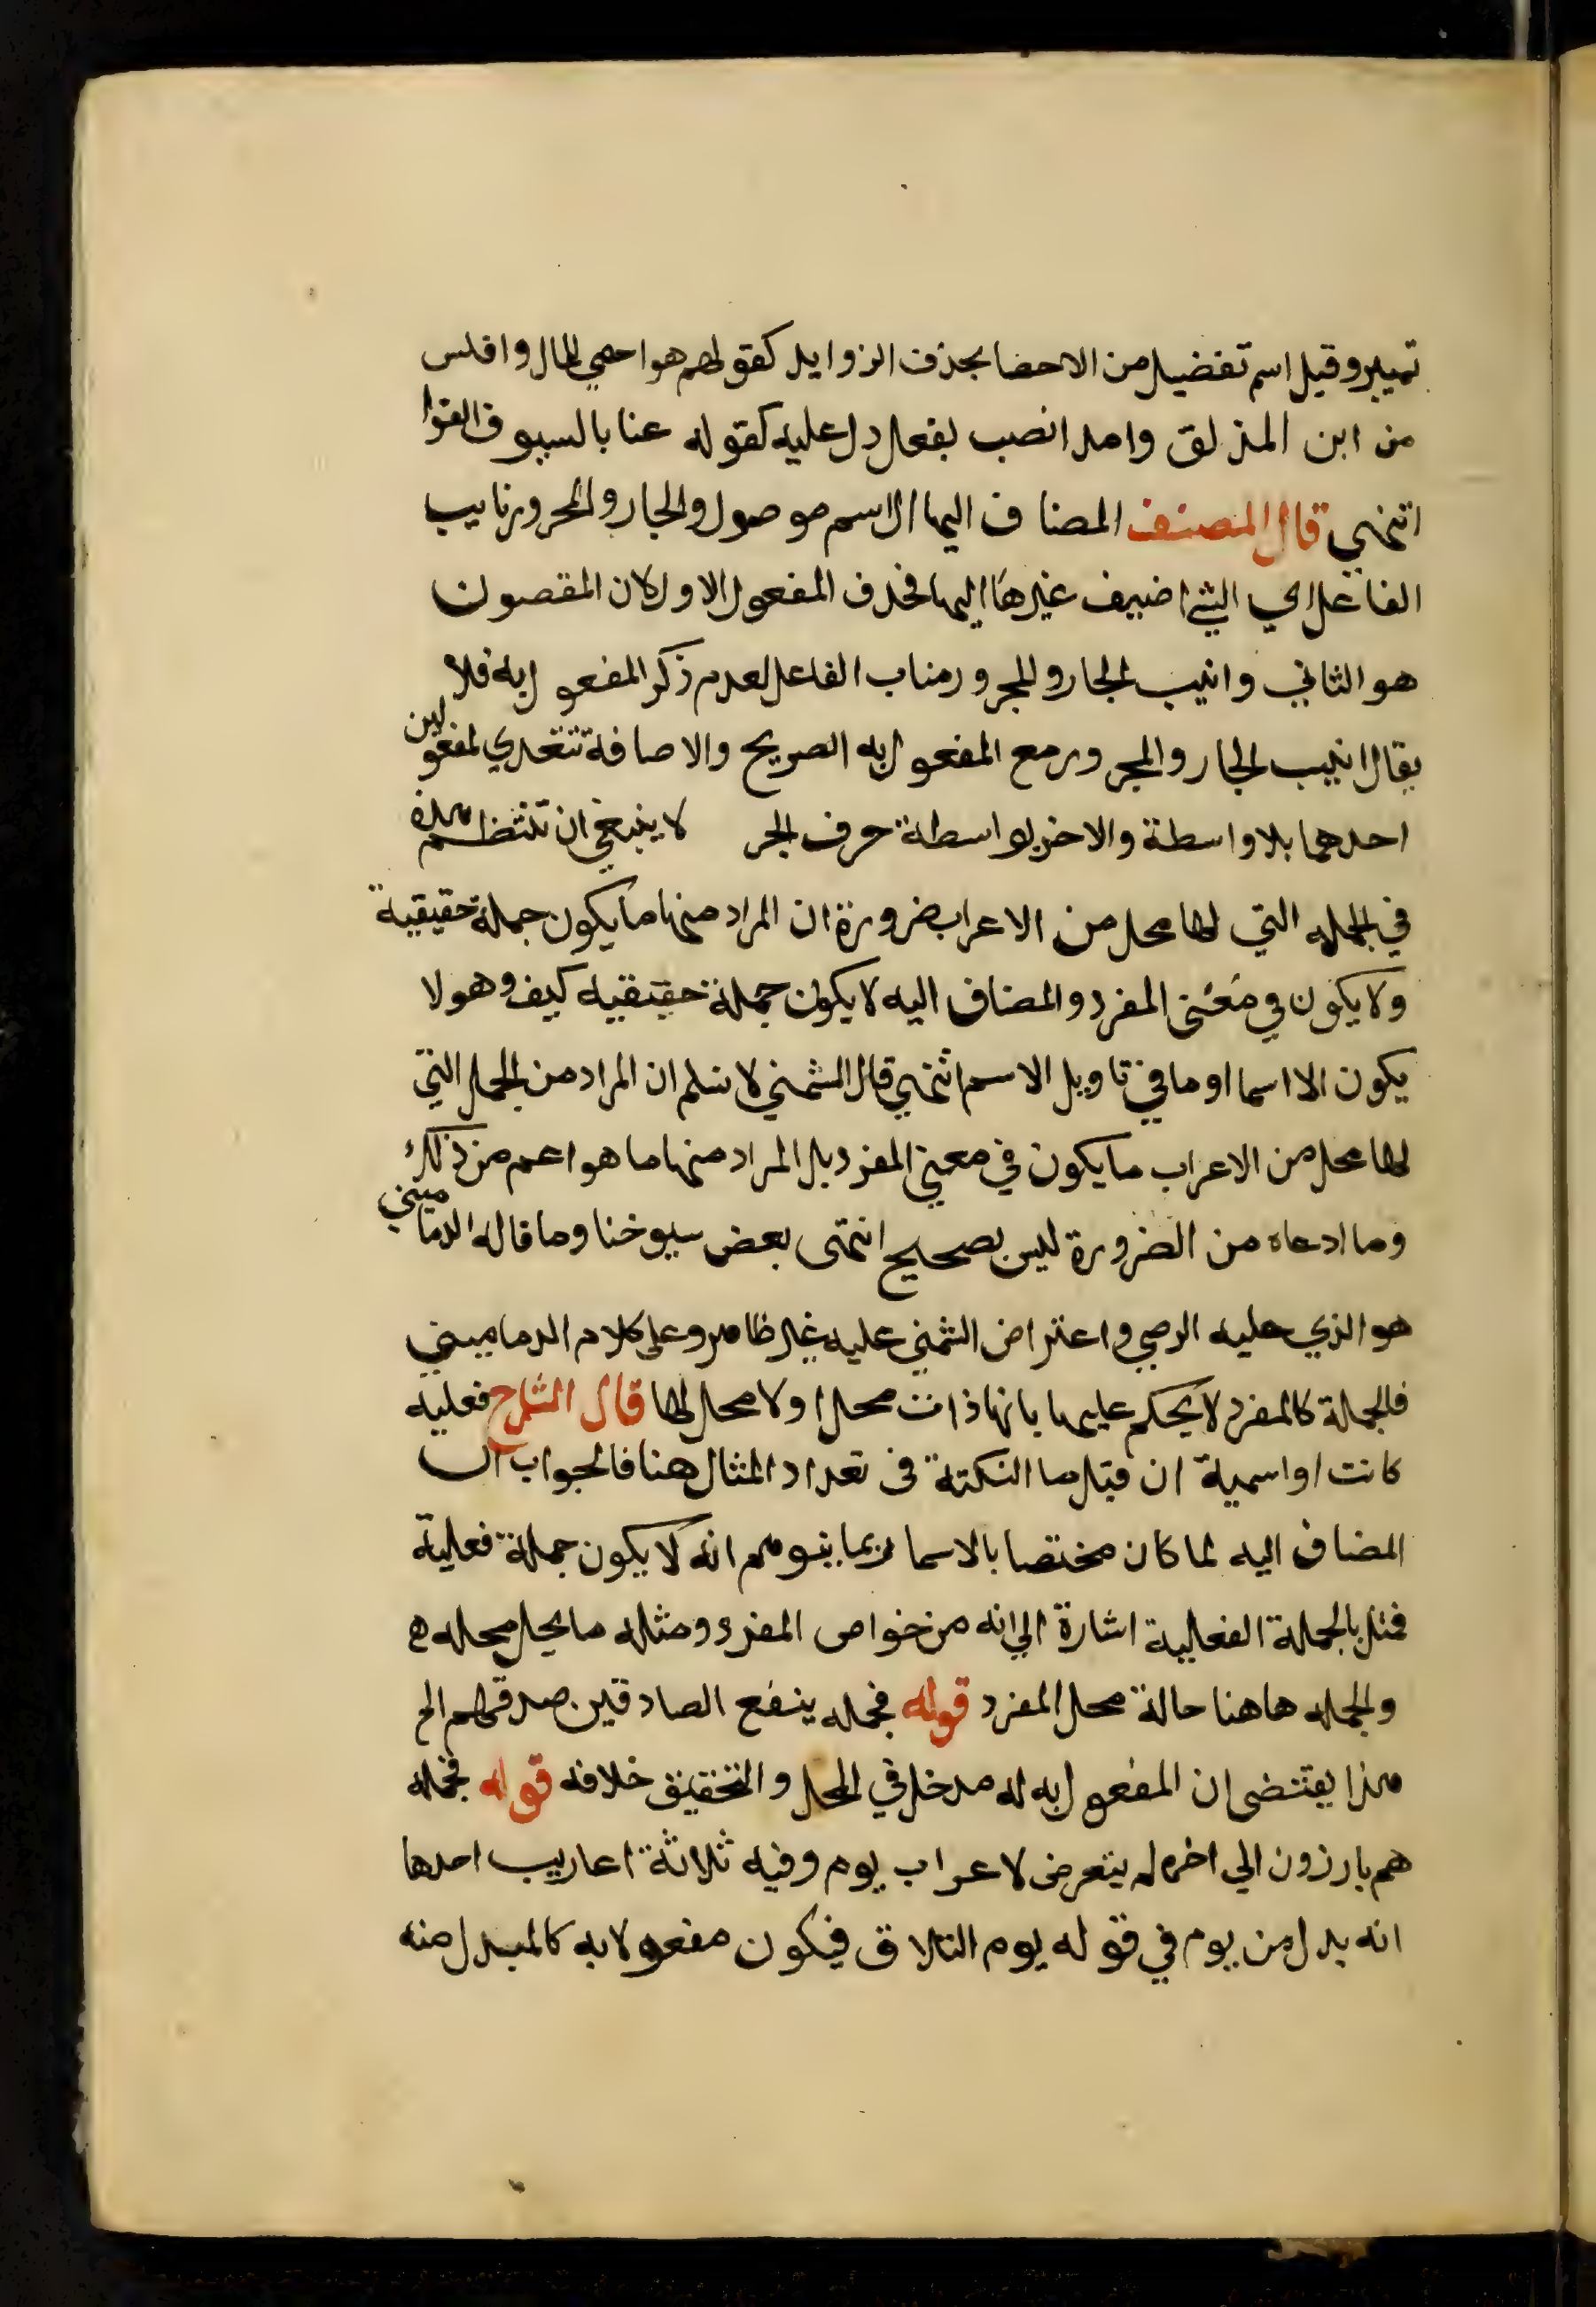 تمييز وقيل اسم تفضيل من الاحصا بحذف الزوايد كقولهم هو احصي للمال وافلس
من ابن المذلق وامدا نصب بفعل دل عليه كقوله عنا بالسيوف القوا
انتهي قال المصنف المضاف اليها ال اسم موصول والجار والمجرور نايب
الفاعل اي الشي اضيف غيرها اليها فحذف المفعول الاول لان المقصون
هو الثاني وانيب الجار والمجرور مناب الفاعل لعدم ذكر المفعول به فلا
يقال انيب الجار والمجرور مع المفعول به الصريح والاضافة تتعدي لمفعولين
احدهما بلا واسطة والاخر بواسطة حرف الجر لا ينبغي ان تنتظم هذه
في الجمله التي لها محل من الاعراب ضرورة ان المراد منها ما يكون جملة حقيقية
ولا يكون في معني المفرد والمضاف اليه لا يكون جملة حقيقيه كيف وهو لا
يكون الا اسما او ما في تاويل الاسم انتهي قال الشمني لا نسلم ان المراد من الجمل التي
لها محل من الاعراب ما يكون في معني المفرد بل المراد منها ما هو اعم من ذلك
وما ادعاه من الضرورة ليس بصحيح انتهى بعض سيوخنا وما قاله الدماميني
هو الذي عليه الرضي واعتراض الشمني عليه غير ظاهر وعلي كلام الدماميني
فالجملة كالمفرد لا يحكم عليها بانها ذات محل او لا محل لها قال الشارح فعليه
كانت او اسمية ان قيل ما النكتة في تعداد المثال هنا فالجواب ان
المضاف اليه لما كان مختصا بالاسما ربما يتوهم انه لا يكون جملة فعلية
فمثل بالجملة الفعلية اشارة الي انه من خواص المفرد ومثله ما يحل محله
والجمله هاهنا حالة محل المفرد قوله فجمله ينفع الصادقين صدقهم الخ
هذا يقتضى ان المفعول به له مدخل في المحل والتحقيق خلافه قوله فجمله
هم بارزون الي اخره لم يتعرض لاعراب يوم وفيه ثلاثة اعاريب احدها
انه بدل من يوم في قوله يوم التلاق فيكون مفعولا به كالمبدل منه